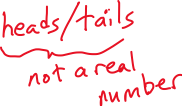 heads/tails
not a real
number